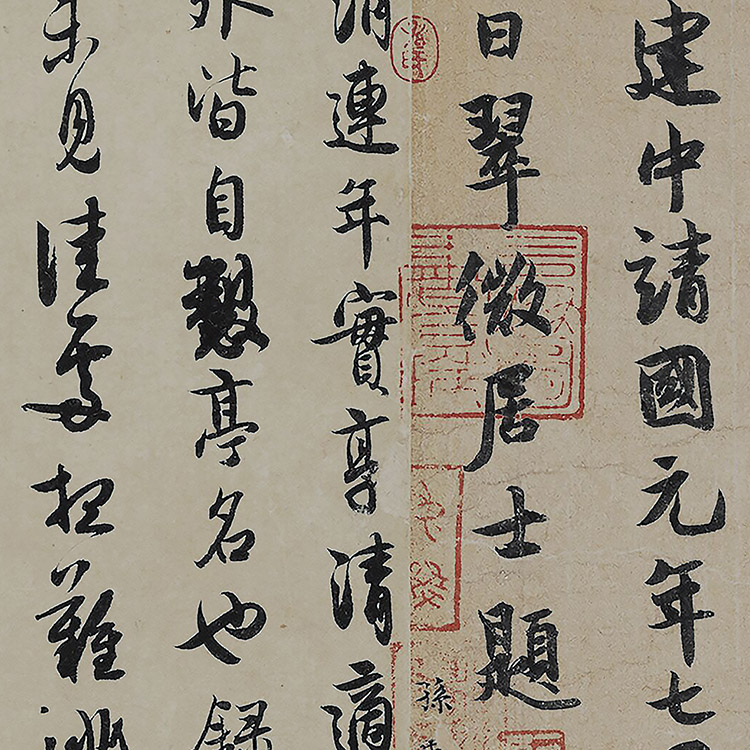 建中靖國元年七
日翠微居士題
孫
清連年實享清適
外皆自製亭名也錄
未見佳處難